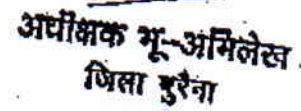 अधीक्षक भू-अभिलेख
जिला मुरैना